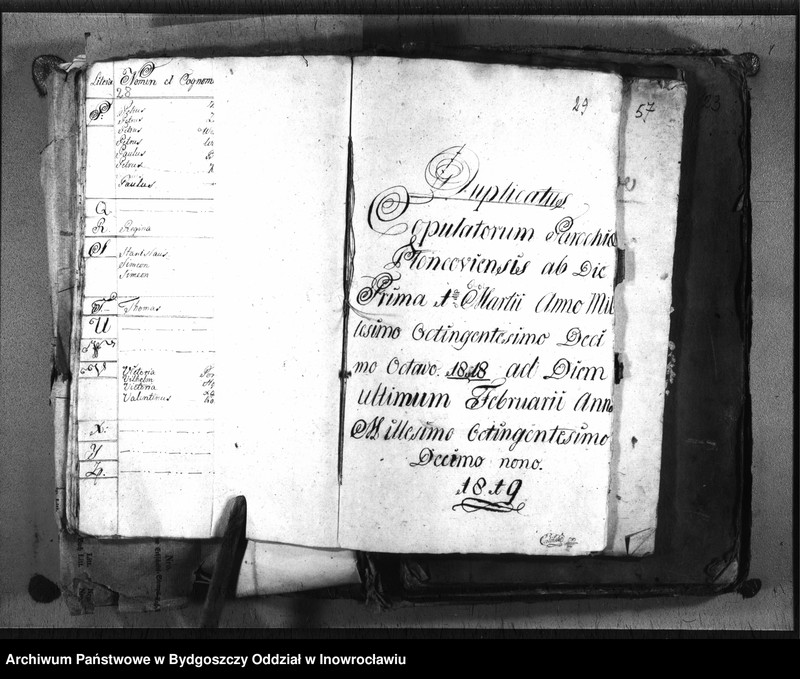 Litera Nomin et Cognom
28
P.
Petrus
Petrus
Petrus
Petrus
Paulus
Petrus
Paulus
Q
R. Regina
S Stanislaus
Simeon
Simeon
T. Thomas
U
W
V Victoria
Vilhelm
Victoria
Valentinus
X.
Y
Z.
29
57
23
Duplicatus
Copulatorum Parochia
ab Die
Prima 1ma Martii Anno Mil
lesimo Octingentesimo Deci
mo Octavo. 1818 ad Diem
ultimum Februarii Anno
Millesimo Octingentesimo
Decimo nono.
1819
Archiwum Państwowe w Bydgoszczy Oddział w Inowrocławiu